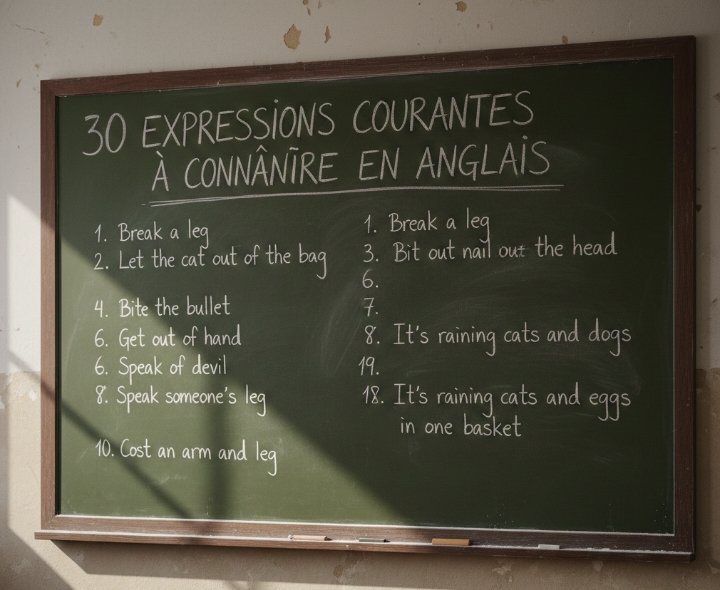 30 EXPRESSIONS COURANTES
À CONNÂNĪRE EN ANGLAIS
1. Break a leg
2. Let the cat out of the bag
4. Bite the bullet
6. Get out of hand
6. Speak of devil
8. Speak someone's leg
10. Cost an arm and leg
1. Break a leg
3. Bit out nail out the head
6.
7.
8. It's raining cats and dogs
19.
18. It's raining cats and eggs
in one basket